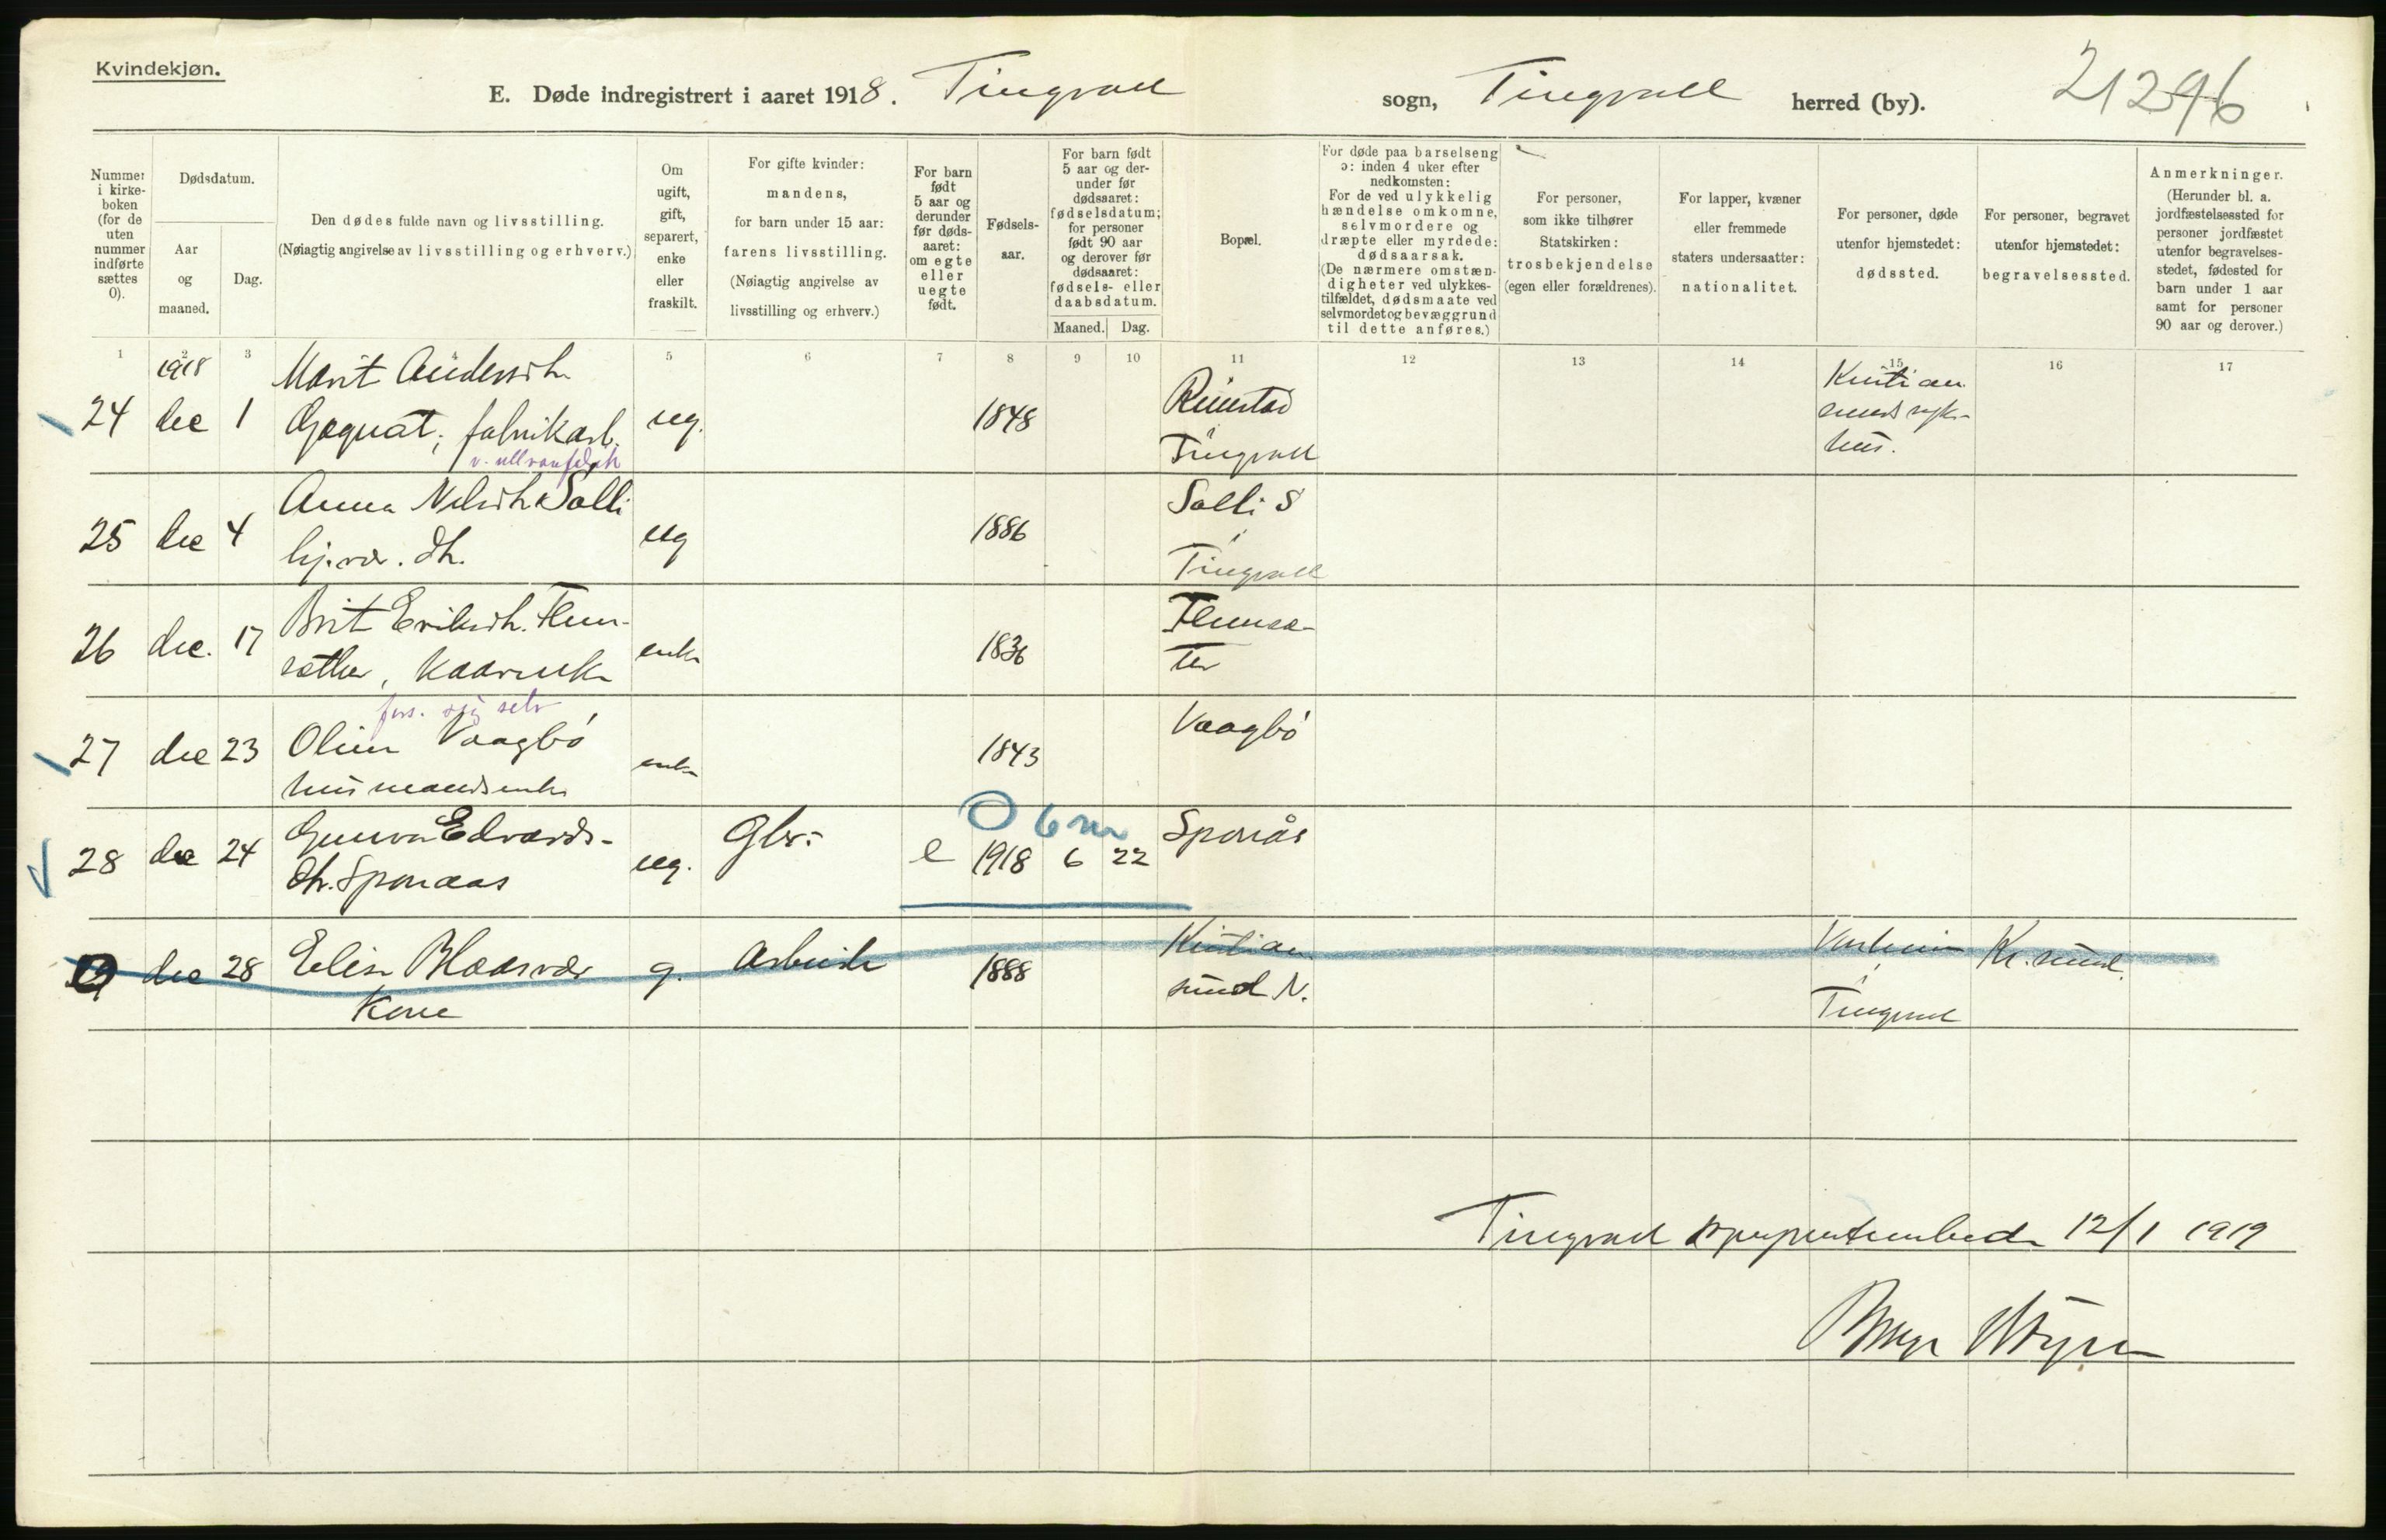 Kvindekjøn.
E. Døde indregistrert i aaret 1918. Tingvoll sogn, Tingvoll herred (by). 21296
Nummer i kirkeboken (for de uten nummer indførte sættes 0).
Dødsdatum.
Aar og maaned.
Dag.
Den dødes fulde navn og livsstilling.
(Nøiagtig angivelse av livsstilling og erhverv.)
Om ugift, gift, separert, enke eller fraskilt.
For gifte kvinder: mandens, for barn under 15 aar: farens livsstilling. (Nøiagtig angivelse av livsstilling og erhverv.)
For barn født 5 aar og derunder før dødsaaret: om egte eller uegte født.
Fødselsaar.
For barn født 5 aar og derunder før dødsaaret: fødselsdatum; for personer født 90 aar og derover før dødsaaret: fødsels- eller daabsdatum.
Maaned. Dag.
Bopæl.
For døde paa barselseng ɔ: inden 4 uker efter nedkomsten: For de ved ulykkelig hændelse omkomne, selvmordere og dræpte eller myrdede: dødsaarsak. (De nærmere omstændigheter ved ulykkestilfældet, dødsmaate ved selvmordet og bevæggrund til dette anføres.)
For personer, som ikke tilhører Statskirken: trosbekjendelse (egen eller forældrenes).
For lapper, kvæner eller fremmede staters undersaatter: nationalitet.
For personer, døde utenfor hjemstedet: dødssted.
For personer, begravet utenfor hjemstedet: begravelsessted.
Anmerkninger. (Herunder bl. a. jordfæstelsessted for personer jordfæstet utenfor begravelsesstedet, fødested for barn under 1 aar samt for personer 90 aar og derover.)
1 2 3 4 5 6 7 8 9 10 11 12 13 14 15 16 17
1918
24 dec 1 Marit Andersdh.
fabrikarb. ug. 1848 Rimstad
Tingvoll
Kristian
sunds syke-
hus.
25 dec 4 Anna Nilsdh Solli
ug 1886 Solli S
Tingvoll
26 dec. 17 Brit Eriksdh. Flem-
sæther, kaarenk enke 1836 Flemsæ-
ter
fors. sig selv
27 dec 23 Olina Vaagbö
husmandsenke enke 1843 Vaagbö
28 dec 24 Gunvor Edvards-
dh. Sponaas ug. Gbr. e 1918 6 22 Sponås
6 m
29 dec 28 Elise Blaasvær
Kone g. Arbeider 1888 Kristian
sund N.
Tingvoll
Kr.sund.
Tingvoll sogneprestembede 12/1 1919